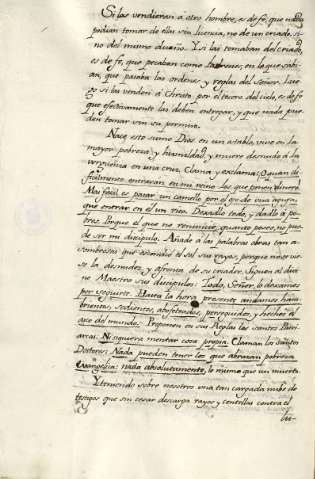 Si las vendieran á otro hombre, es de fé, que nada
podian tomar de ellas sin licencia, no de un criado, si-
no del mismo dueño. Y si las tomaban del criado,
es de fé, que pecaban como ladrones; en lo que sabi-
an, que pasaba las ordenes y reglas del Señor. Lue-
go si las venden á Christo por el tesoro del cielo, es de fé
que efectivamente las deben entregar, y que nada pue-
den tomar sin su permiso.
Nace este sumo Dios en un establo, vive en la
mayor pobreza y humildad, y muere desnudo á la
verguenza en una cruz. Clama y exclama: Quan di-
ficilmente entraran en mi reyno los que ponen dinero
Mas facil es pasar un camello por el ojo de una aguja,
que entrar en él un rico. Dexadlo todo, y dadlo á po-
bres. Porque el que no renuncie, quanto posee, no pue-
de ser mi discipulo. Añade á las palabras obras tan a-
sombrosas que esconde el sol sus rayos, porque no se vie-
se la desnudez y afrenta de su criador. Siguen al divi-
no Maestro sus discipulos: Todo, Señor, lo dexamos
por seguirte. Hasta la hora presente andamos ham-
brientos, sedientos, abofeteados, perseguidos, y hechos el
asco del mundo. Proponen en sus Reglas los Santos Patri-
arcas: Ni siquiera mentar cosa propia. Claman los santos
Doctores: Nada pueden tener los que abrazan pobreza
Evangelica: nada absolutamente, lo mismo que un muerto.
Y teniendo sobre nosotros una tan cargada nube de
testigos que sin cesar descarga rayos y centellas contra el